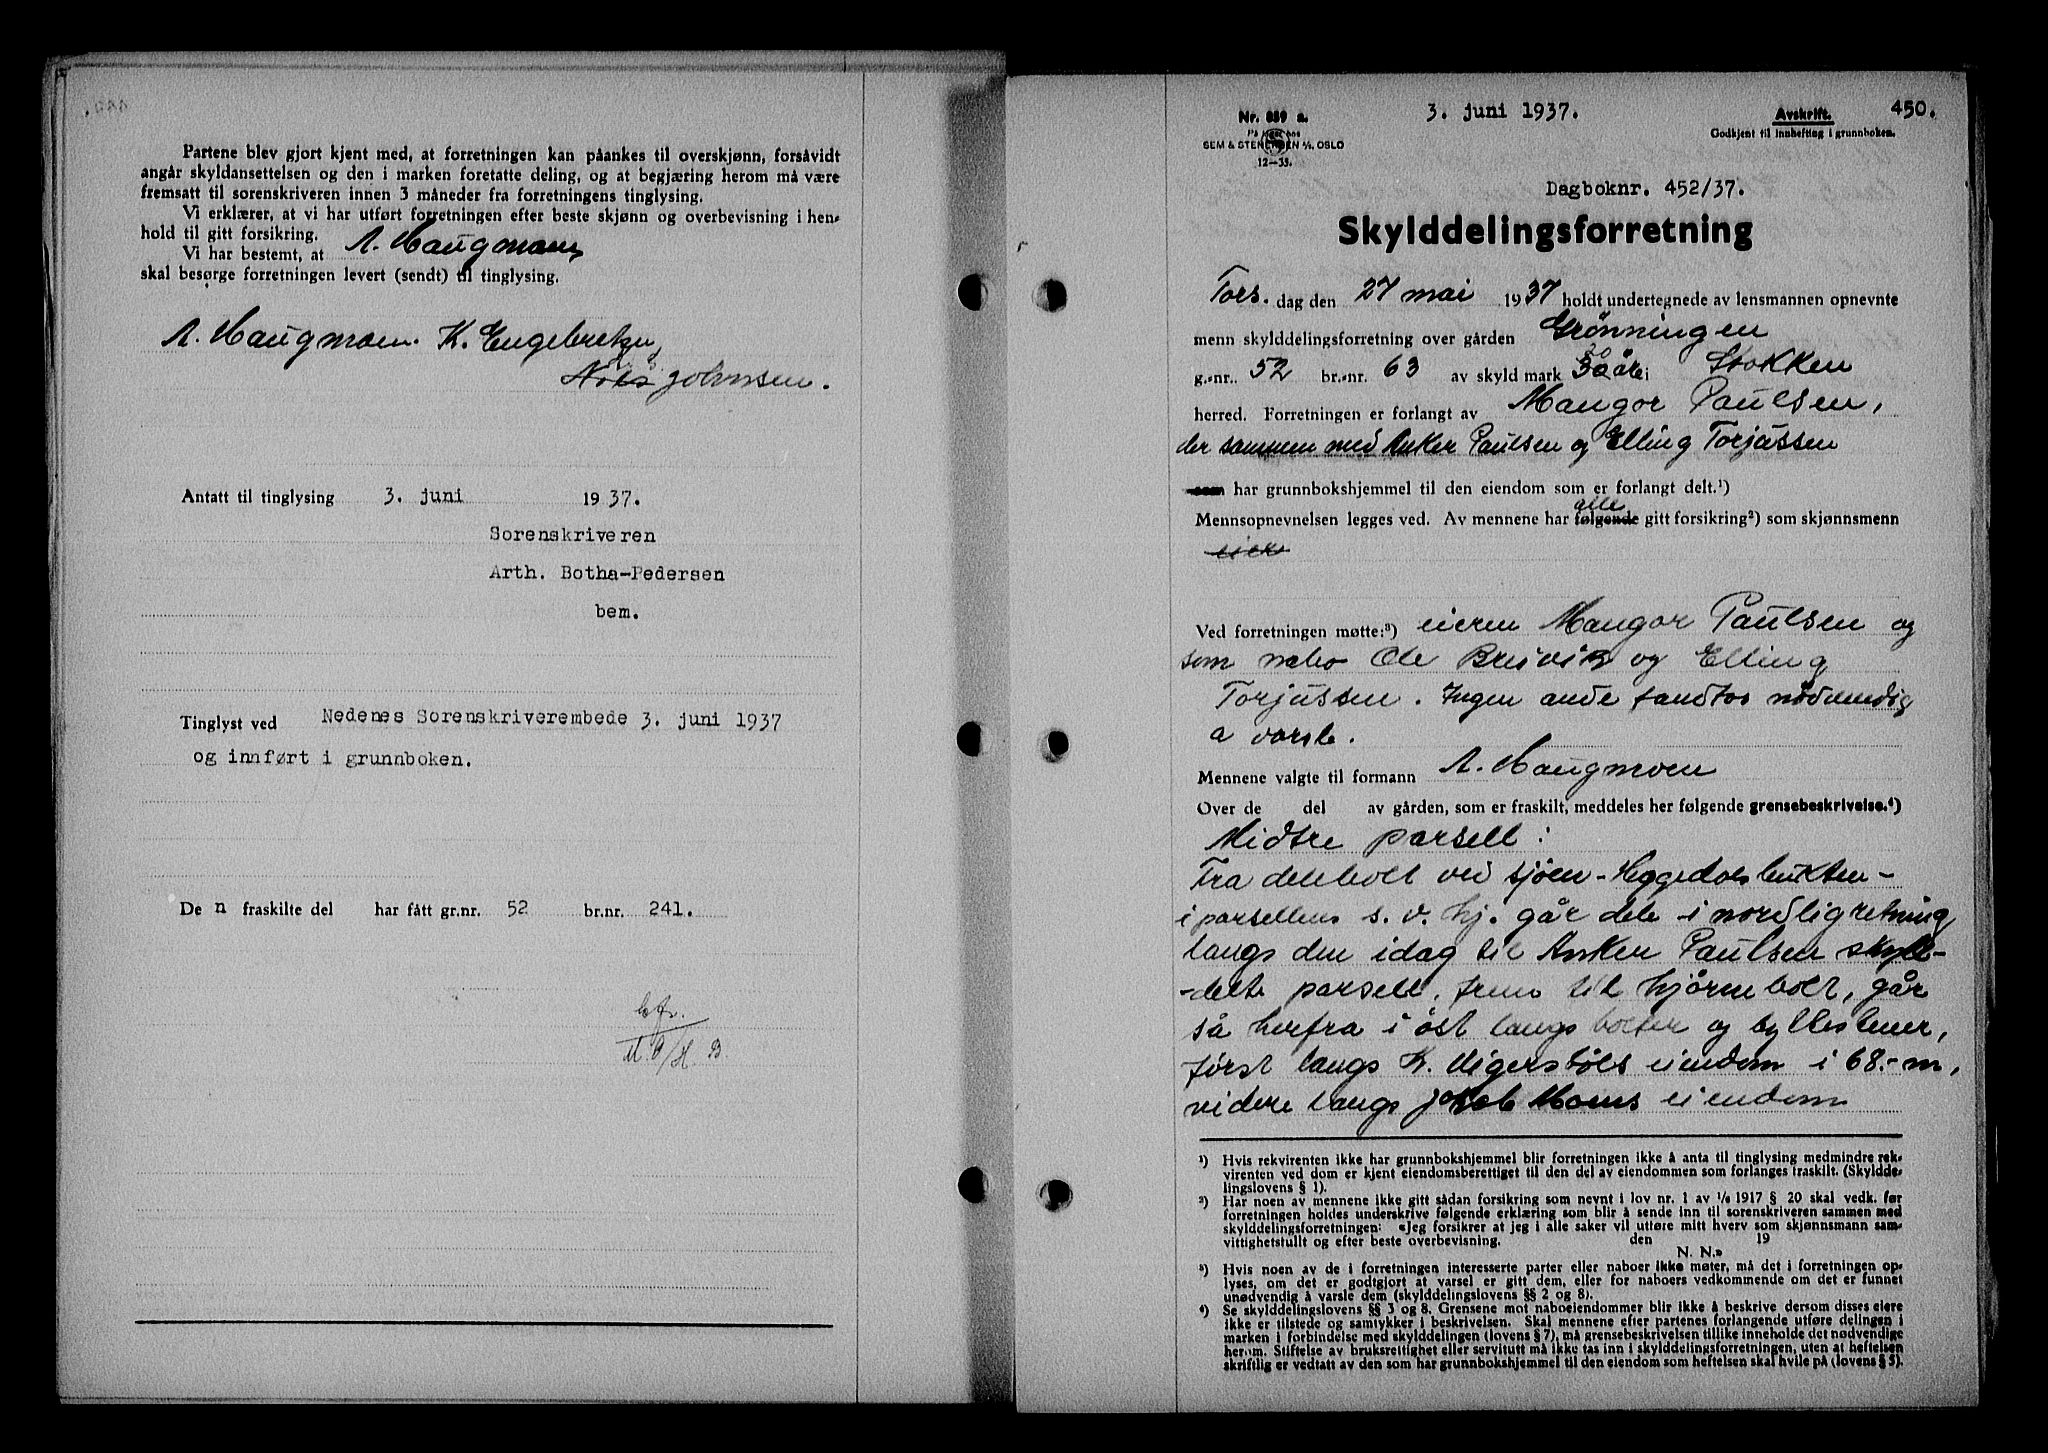 Partene blev gjort kjent med, at forretningen kan påankes til overskjønn, forsåvidt
angår skyldansettelsen og den i marken foretatte deling, og at begjæring herom må være
fremsatt til sorenskriveren innen 3 måneder fra forretningens tinglysing.
Vi erklærer, at vi har utført forretningen efter beste skjønn og overbevisning i hen-
hold til gitt forsikring.
Vi har bestemt, at A. Haugmoen
skal besørge forretningen levert (sendt) til tinglysing.
A. Haugmoen. K. Engebretsen
Nils Johnsen.
Antatt til tinglysing 3. juni 1937.
Sorenskriveren
Arth. Botha-Pedersen
bem.
Tinglyst ved Nedenes Sorenskriverembede 3. juni 1937
og innført i grunnboken.
De n fraskilte del har fått gr.nr. 52 br.nr. 241.
Nr. 859 a.
SEM & STENERSEN A/S. OSLO
12-35.
3. juni 1937.
Avskrift.
Godkjent til innhefting i grunnboken.
450.
Dagboknr. 452/37.
Skylddelingsforretning
Tors. dag den 27 mai 1937 holdt undertegnede av lensmannen opnevnte
menn skylddelingsforretning over gården Grønningen
g.-nr. 52 br.-nr. 63 av skyld mark 30 20 øre i Stokken
herred. Forretningen er forlangt av Mangor Paulsen,
der sammen med Anker Paulsen og Elling Torjussen
som har grunnbokshjemmel til den eiendom som er forlangt delt.¹)
Mennsopnevnelsen legges ved. Av mennene har følgende alle gitt forsikring²) som skjønnsmenn
Ved forretningen møtte:³) eieren Mangor Paulsen og
som nabo Ole Breivik og Elling
Torjussen. Ingen ande fandtos nødvendig
a varsle.
Mennene valgte til formann A. Haugmoen
Over de del av gården, som er fraskilt, meddeles her følgende grensebeskrivelse.⁴)
Midtre parsell:
Fra delebolt ved sjøen - Heggedalsbukten -
i parsellens s. v. hj. går dele i nordlig retning
langs den idag til Anker Paulsen skyld-
-delte parsell, frem til hjørnebolt, går
så herfra i øst langs bolter og byttestener,
først langs K. Vigersbøls eiendom i 68.- m,
videre langs Jakob Moens eiendom
¹) Hvis rekvirenten ikke har grunnbokshjemmel blir forretningen ikke å anta til tinglysing medmindre rek-
virenten ved dom er kjent eiendomsberettiget til den del av eiendommen som forlanges fraskilt. (Skyldde-
lingslovens § 1).
²) Har noen av mennene ikke gitt sådan forsikring som nevnt i lov nr. 1 av 1/6 1917 § 20 skal vedk. før
forretningen holdes underskrive følgende erklæring som blir å sende inn til sorenskriveren sammen med
skylddelingsforretningen: «Jeg forsikrer at jeg i alle saker vil utføre mitt hverv som skjønnsmann sam-
vittighetsfullt og efter beste overbevisning. den 19
N. N.»
³) Hvis noen av de i forretningen interesserte parter eller naboer ikke møter, må det i forretningen op-
lyses, om det er godtgjort at varsel er gitt dem, eller for naboers vedkommende om det er funnet
unødvendig å varsle dem (skylddelingslovens §§ 2 og 8).
⁴) Se skylddelingslovens §§ 3 og 8. Grensene mot naboeiendommer blir ikke å beskrive dersom disses eiere
ikke er tilstede og samtykker i beskrivelsen. Skal mennene efter partenes forlangende utføre delingen i
marken i forbindelse med skylddelingen (lovens § 7), må grensebeskrivelsen tillike inneholde det nødvendige
herom. Stiftelse av bruksrettighet eller servitutt må ikke tas inn i skylddelingsforretningen, uten at heftelsen
skriftlig er vedtatt av den som har grunnbokshjemmel til den eiendom som heftelsen skal hvile på (lovens § 5).